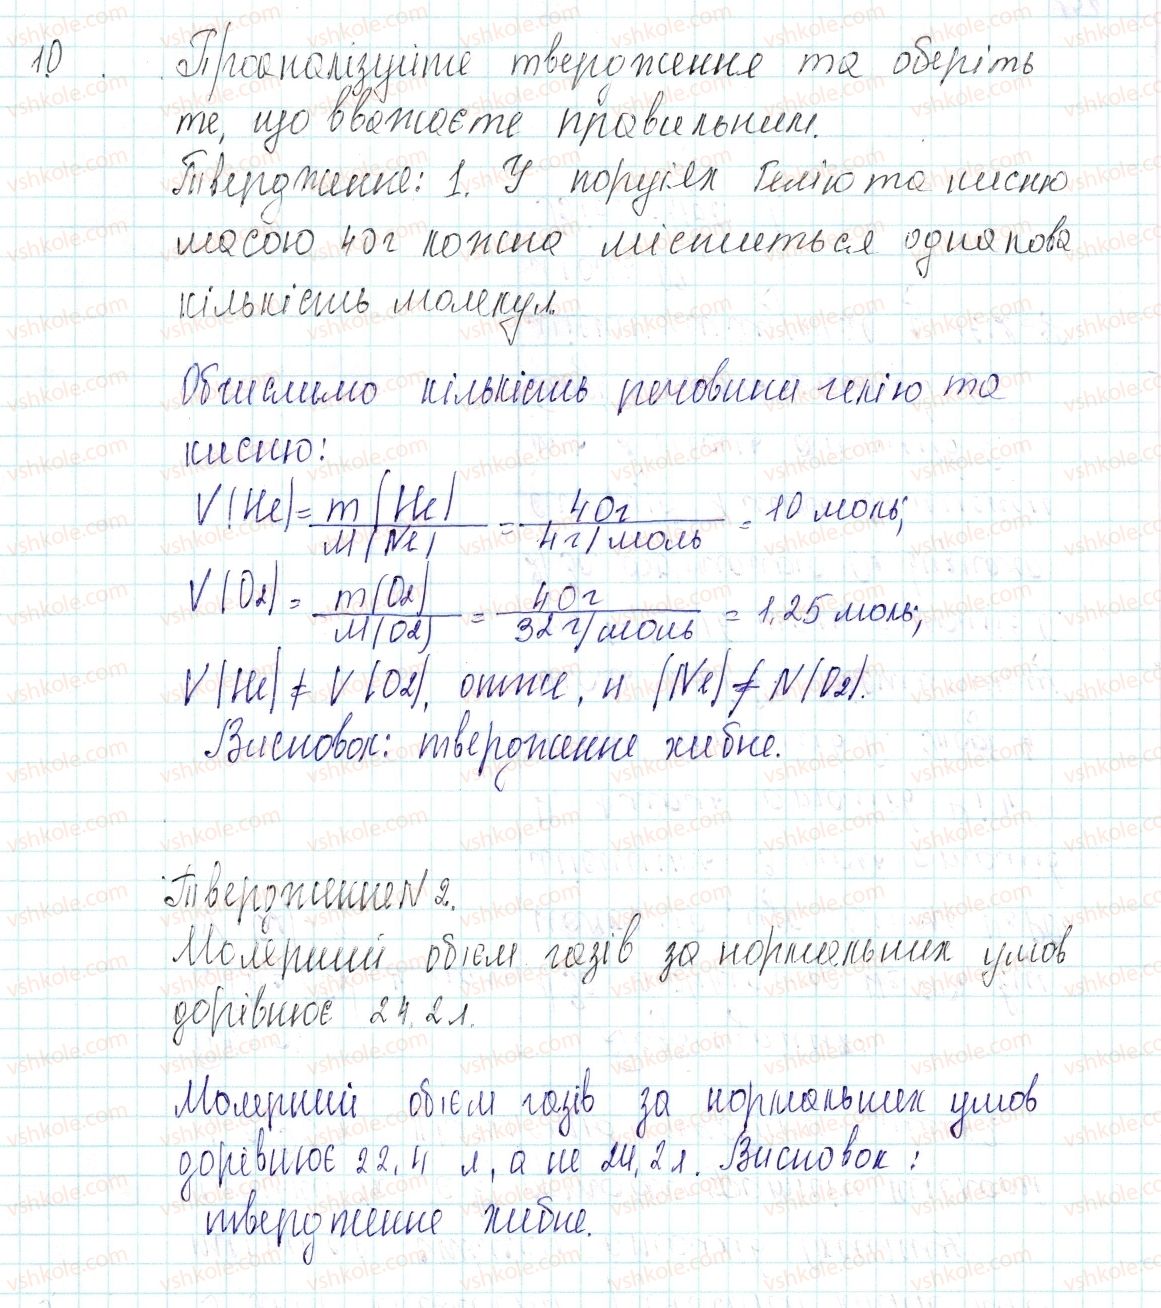 10. Проаналізуйте твердження та оберіть
те, що вважаєте правильним.
Твердження: 1. У порціях Гелію та кисню
масою 40г кожна міститься однакова
кількість молекул.
Обчислимо кількість речовини гелію та
кисню:
V(He) = m(He) / M(He) = 40г / 4г/моль = 10 моль;
V(O2) = m(O2) / M(O2) = 40г / 32г/моль = 1,25 моль;
V(He) ≠ V(O2), отже, н (Ne) ≠ N(O2).
Висновок: твердження хибне.
Твердження N 2.
Молярний обієм газів за нормальних умов
дорівнює 24,2л.
Молярний обієм газів за нормальних умов
дорівнює 22,4 л, а не 24,2л. Висновок:
твердження хибне.
vshkole.com